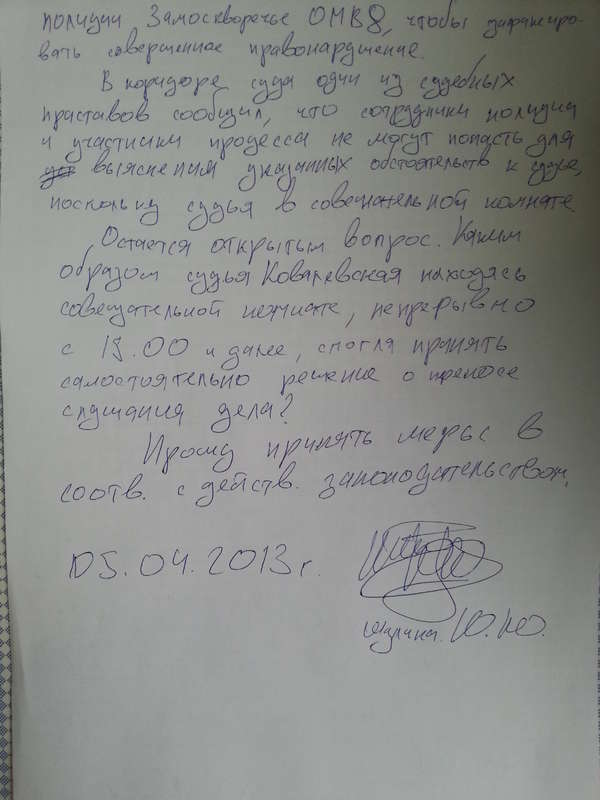 полиции Замоскворечье ОМВД, чтобы зафиксиро-
вать совершенное правонарушение.
В коридоре суда один из судебных
приставов сообщил, что сотрудники полиции
и участники процесса не могут попасть для
выяснения указанных обстоятельств к судье,
поскольку судья в совещательной комнате.
Остается открытым вопрос. Каким
образом судья Ковалевская находясь
совещательной комнате, непрерывно
с 15.00 и далее, смогла принять
самостоятельно решение о переносе
слушания дела?
Прошу принять меры в
соотв. с действ. законодательством.
05.04.2013 г.
Ю.Ю.